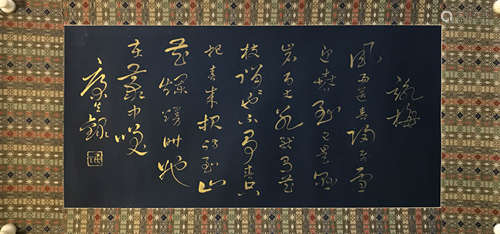 詠梅
風雨送春歸飛雪
迎春到已是懸
崖百丈冰猶有花
枝俏俏也不爭春只
把春來報待到山
花爛漫時她
在叢中笑
康生錄